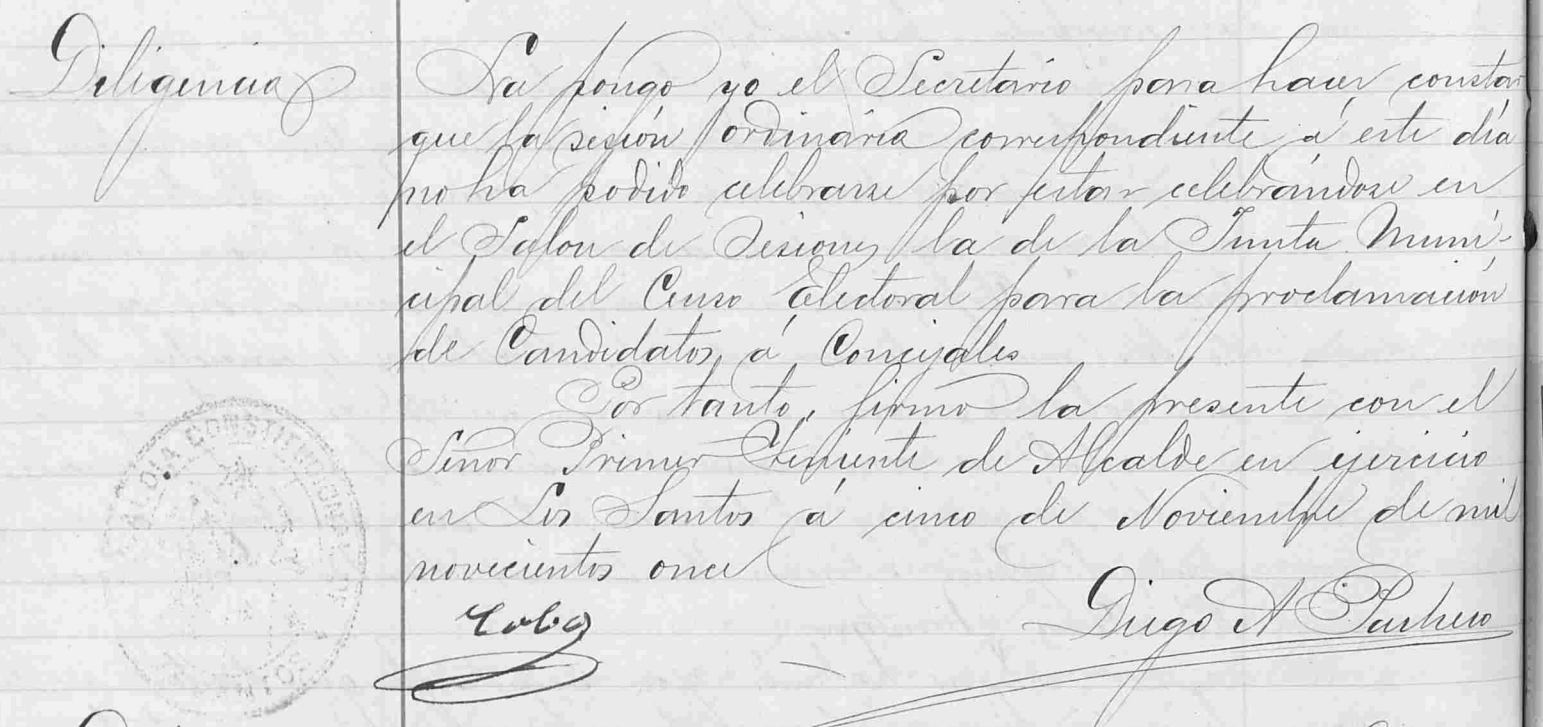 Diligencia
La pongo yo el Secretario para hacer constar
que la sesión ordinaria correspondiente á este día
no ha podido celebrarse por estar celebrándose en
el Salon de Sesiones la de la Junta Muni-
cipal del Censo Electoral para la proclamación
de Candidatos á Concejales
Por tanto, firmo la presente con el
Señor Primer Teniente de Alcalde en ejercicio
en Los Santos á cinco de Noviembre de mil
novecientos once
Diego A Pacheco
ALCALDIA CONSTITUCIONAL